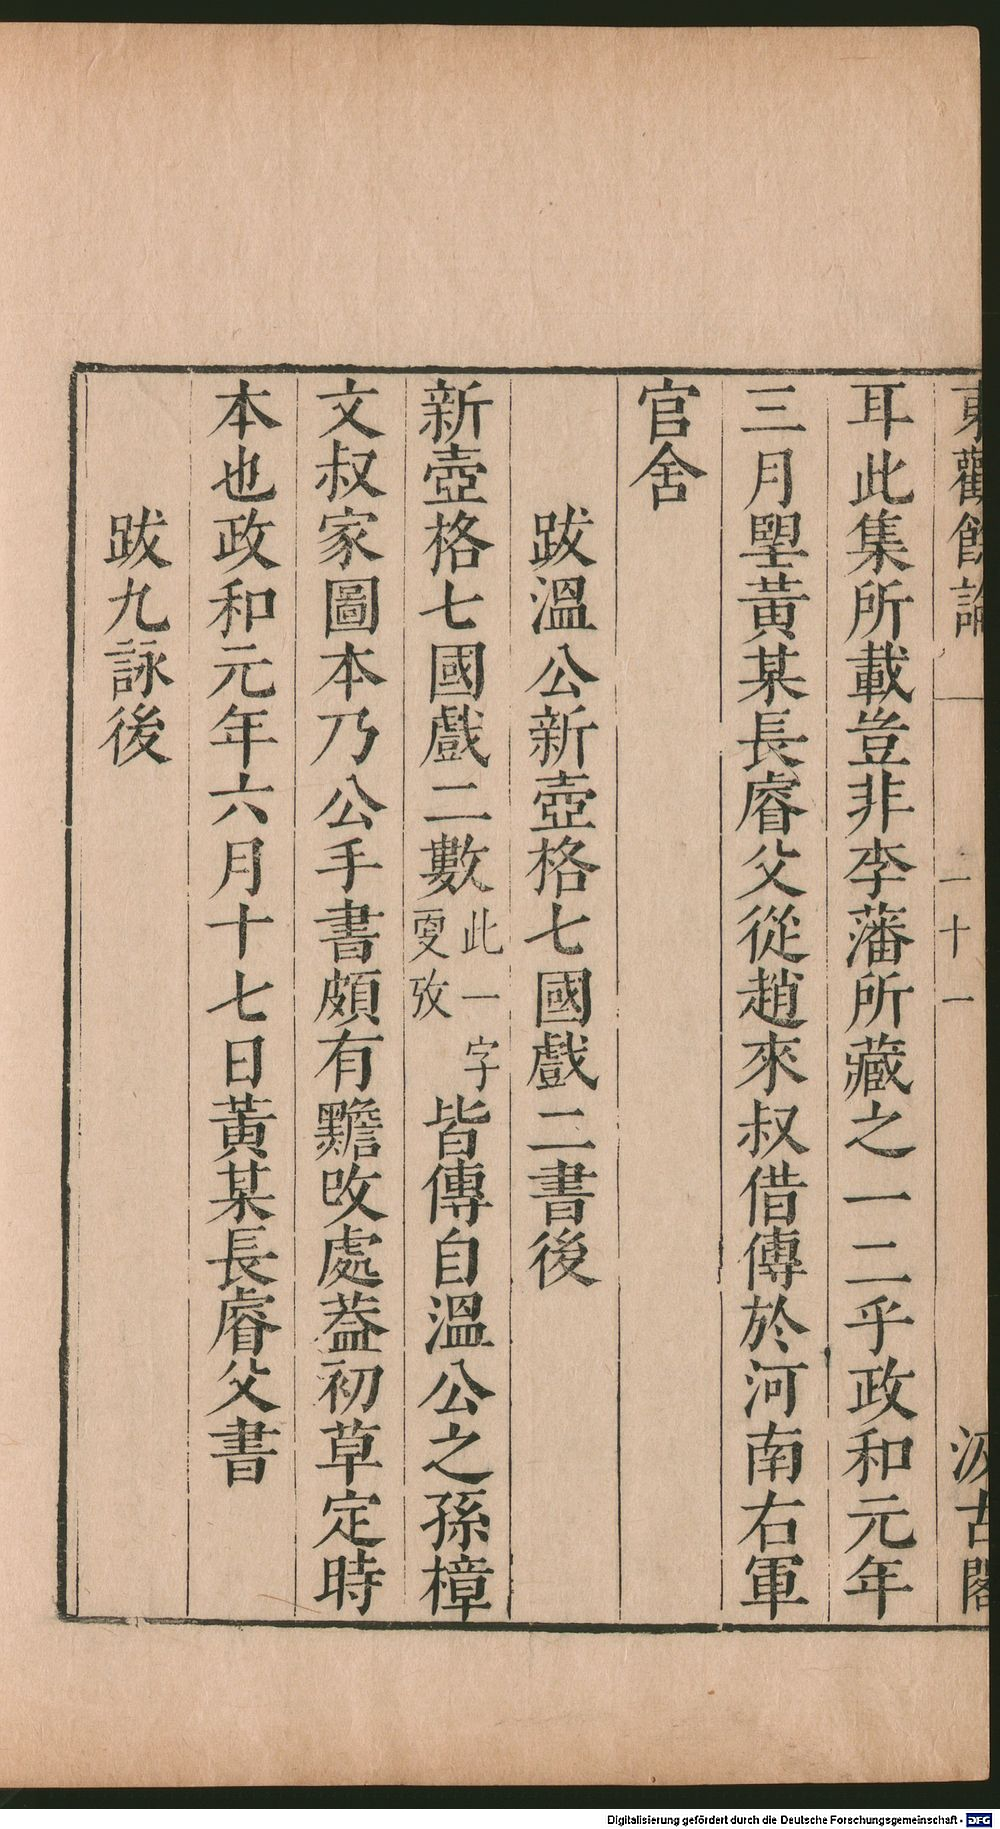 東觀餘論
二十一
汲古閣
耳此集所載豈非李藩所藏之一二乎政和元年
三月朢黃某長睿父從趙來叔借傳於河南右軍
官舍
跋溫公新壺格七國戲二書後
新壺格七國戲二數此一字更攷皆傳自溫公之孫樟
文叔家圖本乃公手書頗有黵改處葢初草定時
本也政和元年六月十七日黃某長睿父書
跋九詠後
Digitalisierung gefördert durch die Deutsche Forschungsgemeinschaft - DFG